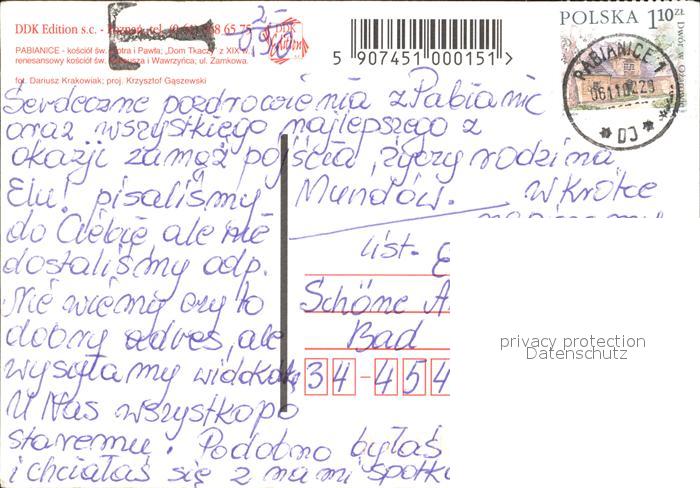 DDK Edition s.c. - Poznań, tel. (0-61) 868 65 75
PABIANICE - kościół św. Piotra i Pawła; „Dom Tkaczy” z XIX w.
renesansowy kościół św. Mateusza i Wawrzyńca; ul. Zamkowa.
fot. Dariusz Krakowiak; proj. Krzysztof Gąszewski
DDK
Edition
5 907451 000151 >
POLSKA 1,10 ZŁ
PABIANICE 1
Serdeczne pozdrowienia z Pabianic
oraz wszystkiego najlepszego z
okazji zamąż pojścia, życzy rodzina
Elu! pisaliśmy Mundów. W krótce
do Ciebie ale nie
dostaliśmy odp.
list.
Nie wiemy czy to
Schöne A
dobry adres, ale
Bad
wysyłamy widokówkę
34-454
U Nas wszystko po
staremu. Podobno byłaś
i chciałaś się z nami spotk
privacy protection
Datenschutz